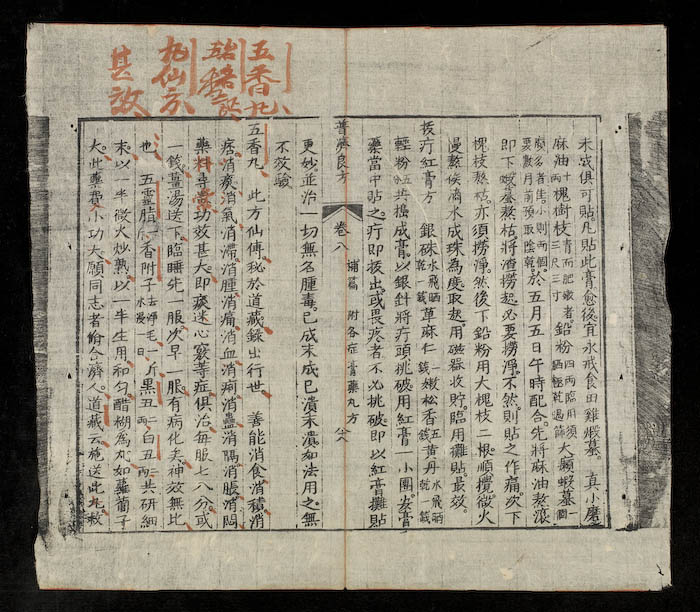 五香丸
仙方
甚效
未或俱可貼。凡貼此膏愈後宜永戒食田雞蝦蟇。 真小磨
麻油十兩槐樹枝青而肥嫩者三尺三寸鉛粉四兩臨用須晒極乾過篩大癩蝦蟇一個
癩多者佳小則兩個要數月前預取陰乾。於五月五日午時配合。先將麻油熬滾
即下蝦蟇熬枯將渣撈起必要撈淨。不然則貼之作痛。次下
槐枝熬枯亦須撈淨然後下鉛粉用大槐枝二根。順攪。微火
慢熬候滴水成珠為度取起。用磁器收貯。臨用攤貼最效。
拔疔紅膏方 銀硃水飛晒乾一錢草麻仁二錢嫩松香五錢黃丹水飛晒乾一錢
輕粉五分共搗成膏。以銀針將疔頭挑破用紅膏一小團安膏
藥當中貼之。疔即拔出。或畏疼者不必挑破即以紅膏攤貼
普濟良方 卷八 補篇 附各症膏藥丸方
更妙並治一切無名腫毒。已成未成已潰未潰如法用之。無
不效驗
五香丸 此方仙傳秘於道藏錄出行世 善能消食消積消
痞消痰消氣消滯消腫消痛消血消痢消蠱消隔消脹消悶
藥料尋常功效甚大即痰迷心竅等症俱治每服七八分。或
一錢薑湯送下臨睡先一服次早一服。有病化去神效無比
也 五靈脂一斤香附子去淨毛水浸一日一斤黑丑二兩白丑二兩共研細
末。以一半微火炒熟以一半生用和勻醋糊為丸如蘿蔔子
大。此藥費小功大願同志者修合濟人。道藏云施送此丸救